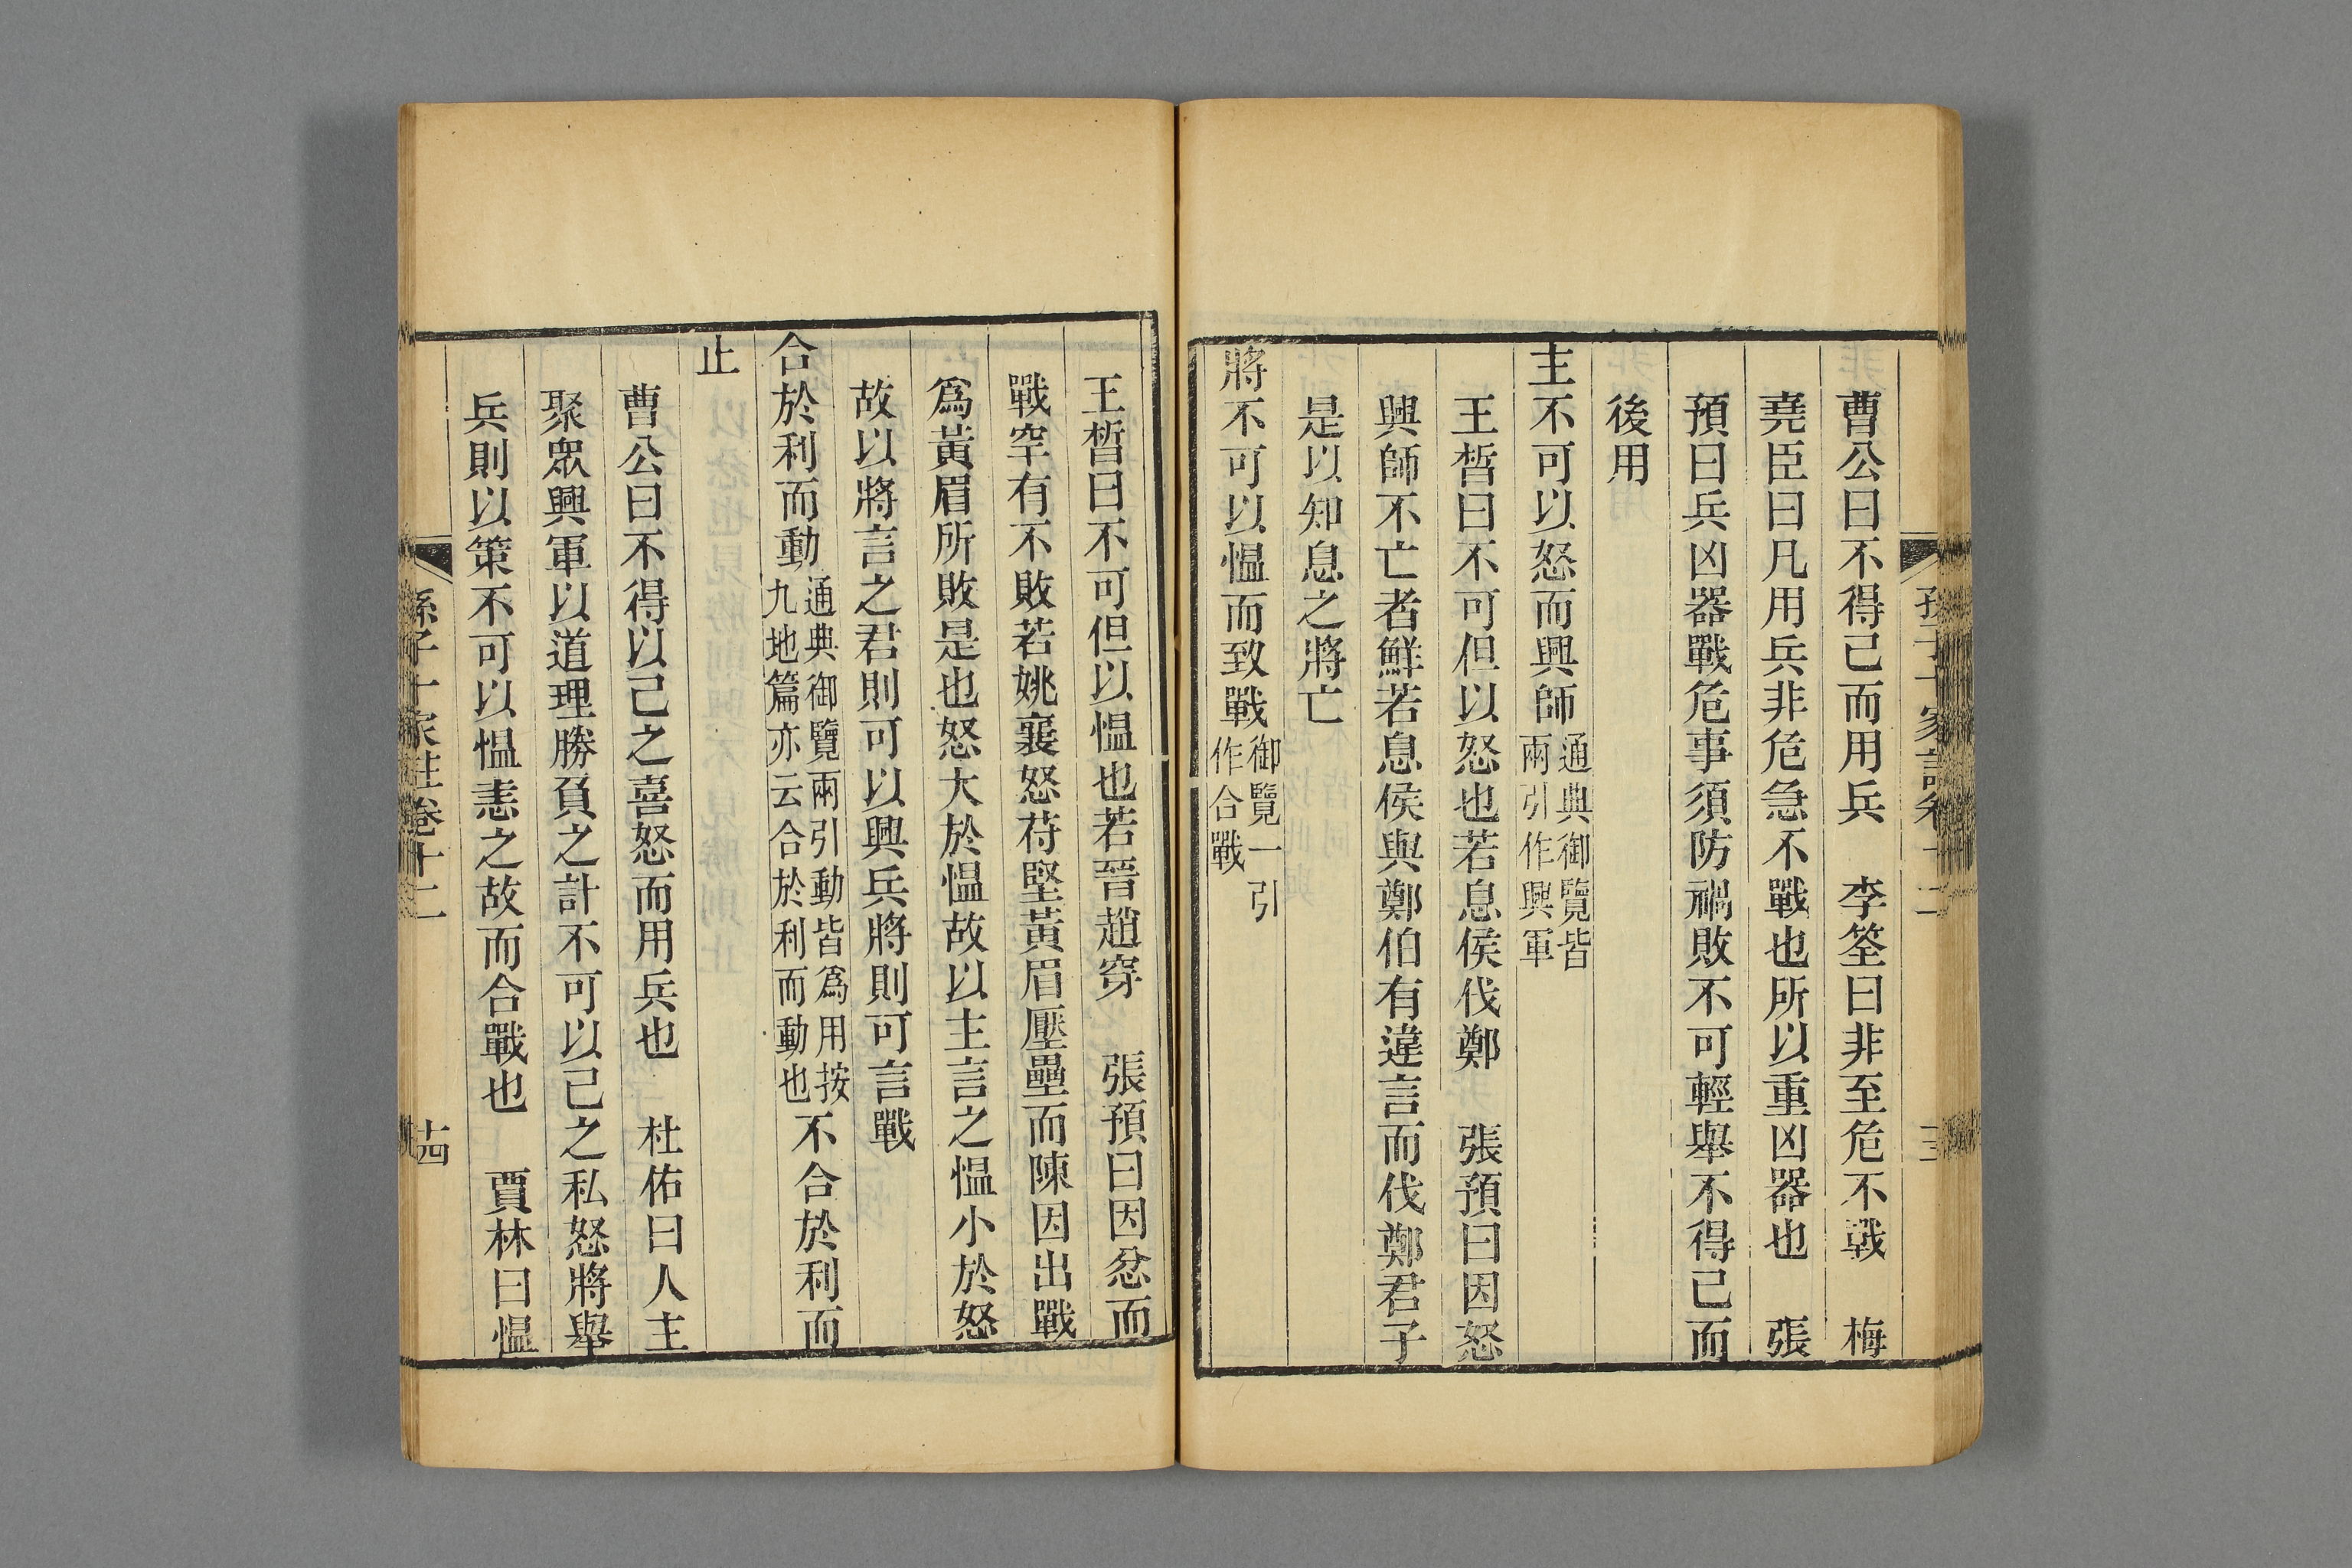 曹公曰不得己而用兵　李筌曰非至危不戰　梅
堯臣曰凡用兵非危急不戰也所以重凶器也　張
預曰兵凶器戰危事須防禍敗不可輕舉不得己而
後用
主不可以怒而興師通典御覽皆兩引作興軍
王晳曰不可但以怒也若息侯伐鄭　張預曰因怒
興師不亡者鮮若息侯與鄭伯有違言而伐鄭君子
是以知息之將亡
將不可以愠而致戰御覽一引作合戰
王晳曰不可但以愠也若晉趙穿　張預曰因忿而
戰罕有不敗若姚襄怒苻堅黃眉壓壘而陳因出戰
爲黃眉所敗是也怒大於愠故以主言之愠小於怒
故以將言之君則可以興兵將則可言戰
合於利而動通典御覽兩引動皆爲用按九地篇亦云合於利而動也不合於利而
止
曹公曰不得以己之喜怒而用兵也　杜佑曰人主
聚衆興軍以道理勝負之計不可以己之私怒將舉
兵則以策不可以愠恚之故而合戰也　賈林曰愠
孫子十家註卷十二　十四